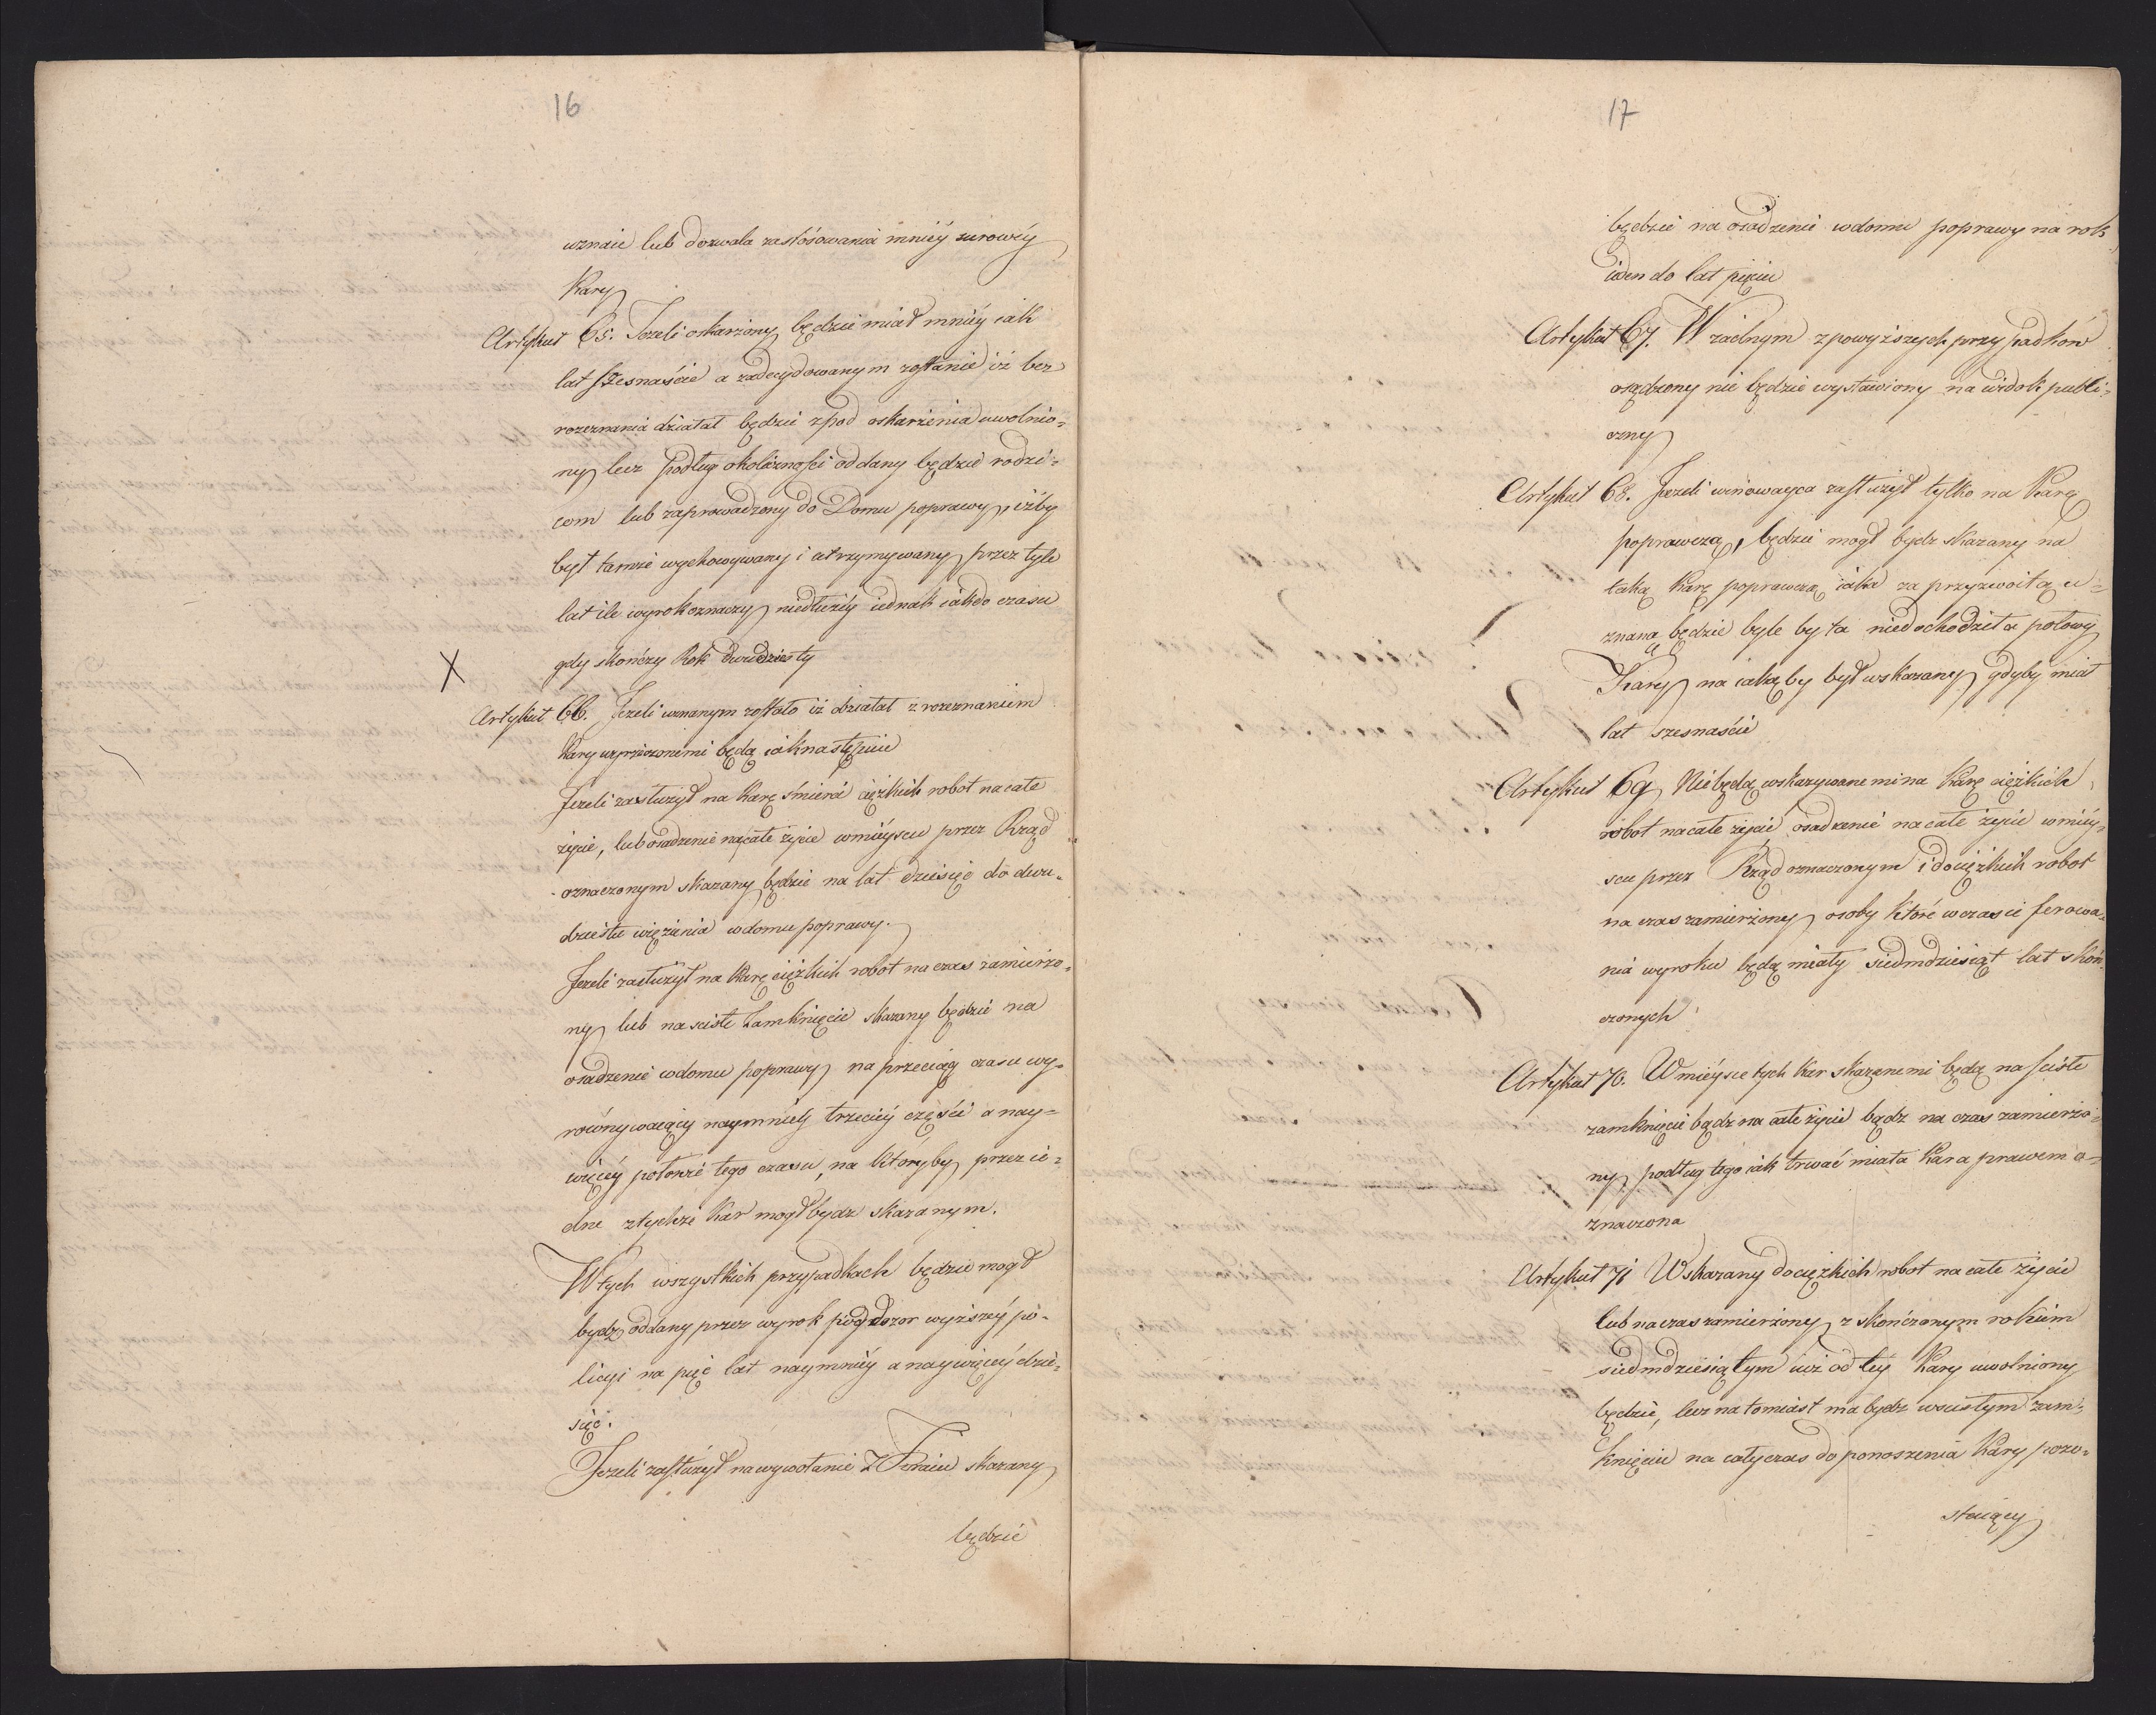 16
uznaie lub dozwala zastósowania mniéy surowéy
Kary
Artykuł 65. Jeżeli oskarżony będzie miał mniéy iak
lat szesnaście a zadecydowanym zostanie iż bez
rozeznania działał będzie zpod oskarżenia uwolnio=
ny lecz podług okoliczności oddany będzie rodzi=
com lub zaprowadzony do Domu poprawy, iżby
był tamże wychowywany i utrzymywany przez tyle
lat ile wyrok oznaczy niedłużéy iednak iak do czasu
gdy skończy Rok dwudziesty
X
Artykuł 66. Jeżeli uznanym zostało iż działał z rozeznaniem
Kary wyrzeczonemi będą iak następuie
Jeżeli zasłużył na Karę śmierci ciężkich robot na całe
życie, lub osadzenie na całe życie w mieyscu przez Rząd
oznaczonym skazany będzie na lat dziesięć do dwu=
dziestu więzienia w domu poprawy.
Jeżeli zasłużył na Karę ciężkich robot na czas zamierzo=
ny lub na scisłe Zamknięcie skazany będzie na
osadzenie w domu poprawy na przeciąg czasu wy=
równywaiący naymniéy trzeciéy części a nay=
więcéy połowie tego czasu, na któryby przez ie=
dne z tychże Kar mogł bydz skazanym.
W tych wszystkich przypadkach będzie mogł
bydz oddany przez wyrok pod dozor wyższéy po=
licyi na pięć lat naymniéy a naywięcéy dzie=
sięć.
Jeżeli zasłużył na wywołanie z Kraiu skazany
będzie
17
będzie na osadzenie w domu poprawy na rok
ieden do lat pięciu
Artykuł 67. W żadnym z powyższych przypadków
osądzony nie będzie wystawiony na widok publi=
czny
Artykuł 68. Jeżeli winowayca zasłużył tylko na Karę
poprawczą, będzie mogł bydz skazany na
taką Karę poprawczą iaka za przyzwoitą u=
znana będzie byle była niedochodziła połowy
Kary na iakąby był wskazany gdyby miał
lat szesnaście
Artykuł 69 Niebędą wskazywanemi na Karę ciężkich
robot na całe życie, osadzenie na całe życie w miey=
scu przez Rząd oznaczonym i do ciężkich robot
na czas zamierzony osoby które w czasie ferowa=
nia wyroku będą miały siedmdziesiąt lat skoń
czonych
Artykuł 70. W mieysce tych kar skazanemi będą na scisłe
zamknięcie bądz na całe życie bądz na czas zamierzo=
ny podług tego iak trwać miała Kara prawem o=
znaczona
Artykuł 71 Wskazany do ciężkich robot na całe życie
lub na czas zamierzony z skończonym rokiem
siedmdziesiątym iuż od téy Kary uwolniony
będzie, lecz natomiast ma bydz w scisłym zam=
knięciu na cały czas do ponoszenia Kary pozo=
staiący